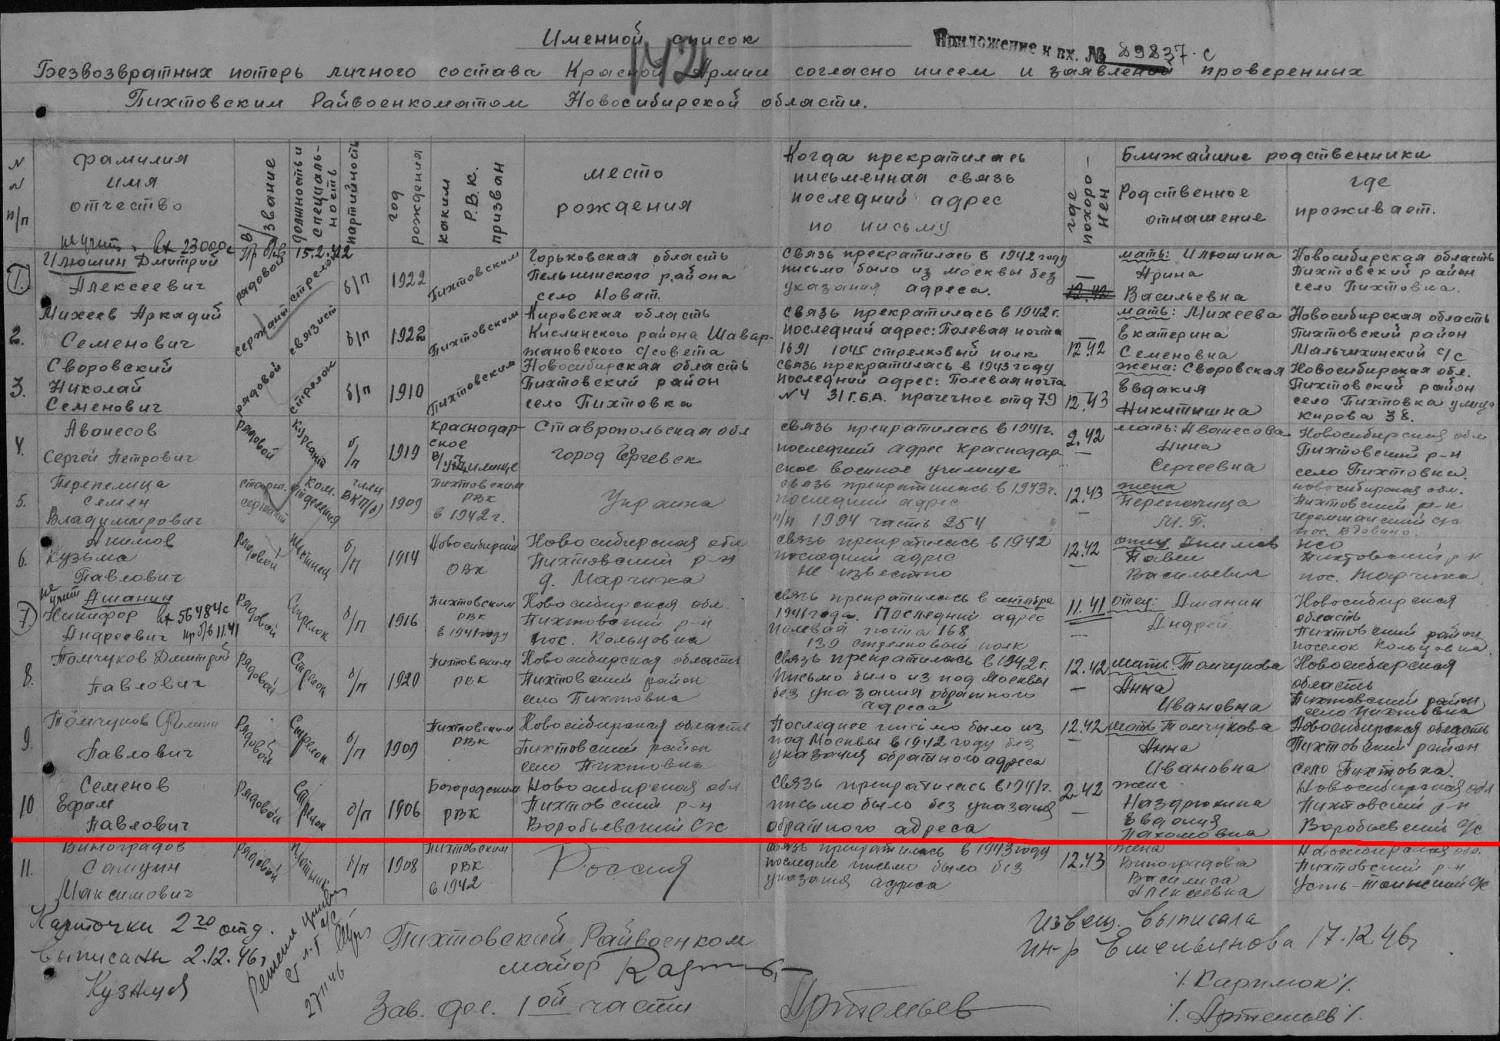 Именной список
Приложение к вх. № 89837-с
142
Безвозвратных потерь личного состава Красной Армии согласно писем и заявлений проверенных
Пихтовским Райвоенкоматом Новосибирской области.
N N п/п
фамилия имя отчество
в/звание
должность и специальность
партийность
год рождения
каким Р.В.К. призван
место рождения
Когда прекратилась письменная связь последний адрес по письму
где похоронен
Ближайшие родственники
Родственное отношение
где проживает.
вх 23000с
15.2.42
1. Илюшин Дмитрий Алексеевич
рядовой стрелок б/п 1922 Пихтовским
Горьковская область
района
село Новат.
Связь прекратилась в 1942 году
письмо было из Москвы без
указания адреса.
12.42
мать: Илюшина
Арина
Васильевна
Новосибирская область
Пихтовский район
село Пихтовка.
2. Михеев Аркадий Семенович
сержант связист б/п 1922 Пихтовским
Кировская область
района Шавар-
жановского с/совета
Связь прекратилась в 1942г.
последний адрес: Полевая почта
1691 1045 стрелковый полк
12.42
мать: Михеева
Екатерина
Семеновна
Новосибирская область
Пихтовский район
с/с
3. Своровский Николай Семенович
рядовой стрелок б/п 1910 Пихтовским
Новосибирская область
Пихтовский район
село Пихтовка
связь прекратилась в 1943 году
последний адрес: Полевая почта
12.43
жена: Своровская
Евдакия
Никитишна
Новосибирская обл.
Пихтовский район
село Пихтовка улица
Кирова 38.
4. Аванесов Сергей Петрович
рядовой курсант б/п 1919
Краснодар-
ское
в/училище
Ставропольская обл
город
связь прекратилась в 1941г.
последний адрес Краснодар
ское военное училище
2.42
мать: Аванесова
Нина
Сергеевна
Новосибирская обл
Пихтовский р-н
село Пихтовка.
5. Перепелица Семен Владимирович
ком. отделения член ВКП(б) 1909
Пихтовским
РВК
в 1942г.
Украина
связь прекратилась в 1943г.
последний адрес
п/п 1994 часть 254
12.43
жена
Новосибирская обл.
Пихтовский р-н
6. Акимов Кузьма Павлович
Рядовой б/п 1914
Новосибирский
ОВК
Новосибирская обл
Пихтовский р-н
д. Марчиха
связь прекратилась в 1942
последний адрес
не известно
12.42
отец Акимов
Павел
Васильевич
НСО
Пихтовский р-н
пос. Марчиха.
7. Ашанин Никифор Андреевич
вх 56484с
11.41
Рядовой Стрелок б/п 1916
Пихтовским
РВК
в 1941 году
Новосибирская обл.
Пихтовский р-н
пос. Кольцовка
связь прекратилась в октябре
1941 года. Последний адрес
Полевая почта 168
139 стрелковый полк
11.41
отец: Ашанин
Андрей
Новосибирская
область
Пихтовский район
поселок Кольцовка.
8. Помчуков Дмитрий Павлович
Рядовой Стрелок б/п 1920
Пихтовским
РВК
Новосибирская область
Пихтовский район
село Пихтовка
Связь прекратилась в 1942г.
Письмо было из под Москвы
без указания обратного
адреса
12.42
мать Помчукова
Анна
Ивановна
Новосибирская
область
Пихтовский район
село Пихтовка
9. Помчуков Павлович
Рядовой Стрелок б/п 1909
Пихтовским
РВК
Новосибирская область
Пихтовский район
село Пихтовка
Последнее письмо было из
под Москвы в 1942 году без
указания обратного адреса
12.42
мать Помчукова
Анна
Ивановна
Новосибирская область
Пихтовский район
село Пихтовка.
10 Семенов Ефим Павлович
Рядовой Стрелок б/п 1906
Богородским
РВК
Новосибирская обл
Пихтовский р-н
Воробьевский с/с
связь прекратилась в 1941г.
письмо было без указания
обратного адреса
2.42
жена
Наздрюхина
Евдокия
Пахомовна
Новосибирская обл
Пихтовский р-н
Воробьевский с/с
11. Виноградов Максимович
Рядовой б/п 1908
Пихтовским
РВК
в 1942
Россия
связь прекратилась в 1943 году
последнее письмо было без
указания адреса
12.43
жена
Виноградова
Василиса
Алексеевна
Новосибирская обл.
Пихтовский р-н
с/с
Карточки 2го отд.
выписаны 2.12.46г
Кузнецов
27 11 46
Пихтовский Райвоенком
майор
Зав. дел. 1ой части Артемьев
Извещ. выписала
ин-р Емельянова 17.12.46г
/. Каримок /.
/. Артемьев /.